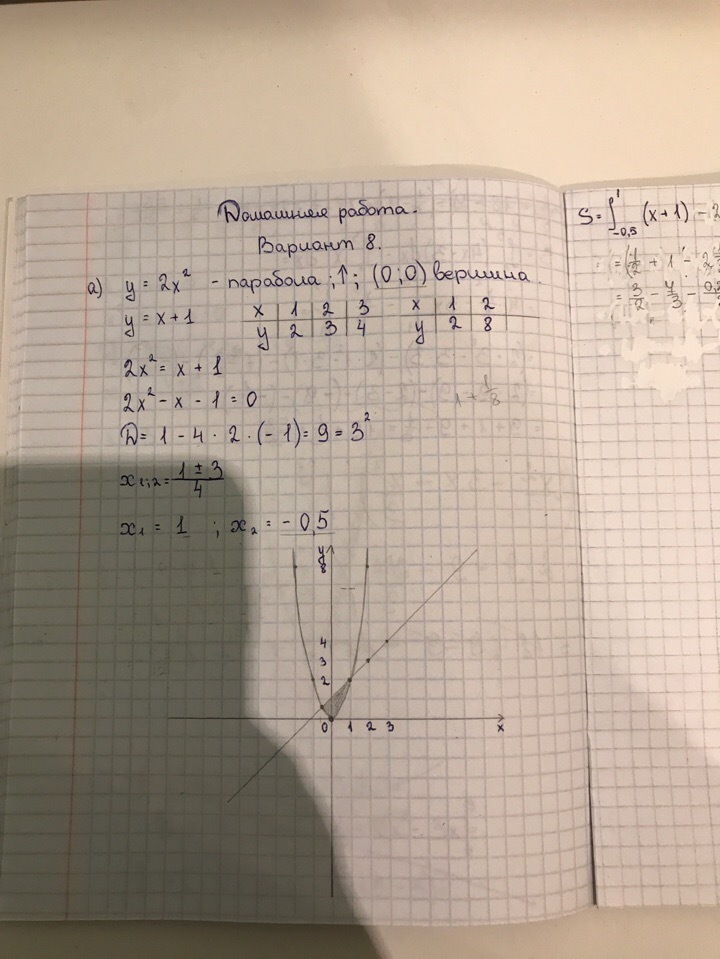 Домашняя работа.
Вариант 8.
а) y = 2x² - парабола ; ↑ ; (0;0) вершина.
y = x + 1
x | 1 | 2 | 3
y | 2 | 3 | 4
x | 1 | 2
y | 2 | 8
2x² = x + 1
2x² - x - 1 = 0
1 + 1/8
D = 1 - 4 · 2 · (-1) = 9 = 3²
x₁;₂ = (1 ± 3)/4
x₁ = 1 ; x₂ = - 0,5
y
8
4
3
2
0 1 2 3 x
S = ∫₋₀,₅¹ (x+1) - 2
= 3/2 - 4/3 -